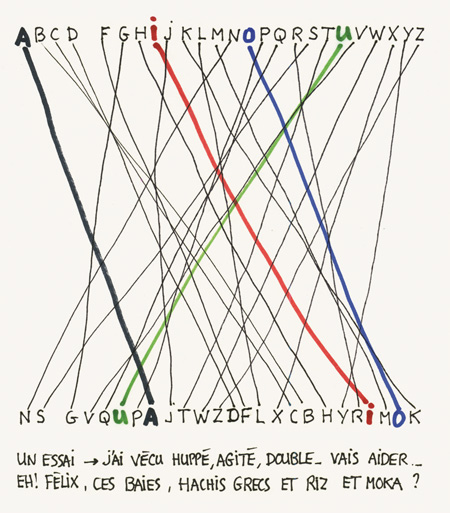 ABCD FGHijKLMNOPQRSTUVWXYZ
NS GVQUPAJTWZDFLXCBHYRiMOK
UN ESSAI → J'AI VÉCU HUPPÉ, AGITÉ, DOUBLE_ VAIS AIDER_
EH! FÉLIX, CES BAIES, HACHIS GRECS ET RIZ ET MOKA ?